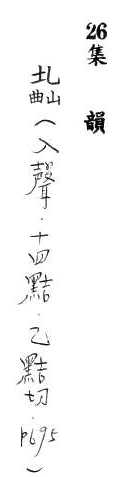 26
集韻
圠山曲(入聲.十四黠.乙黠切.p695)